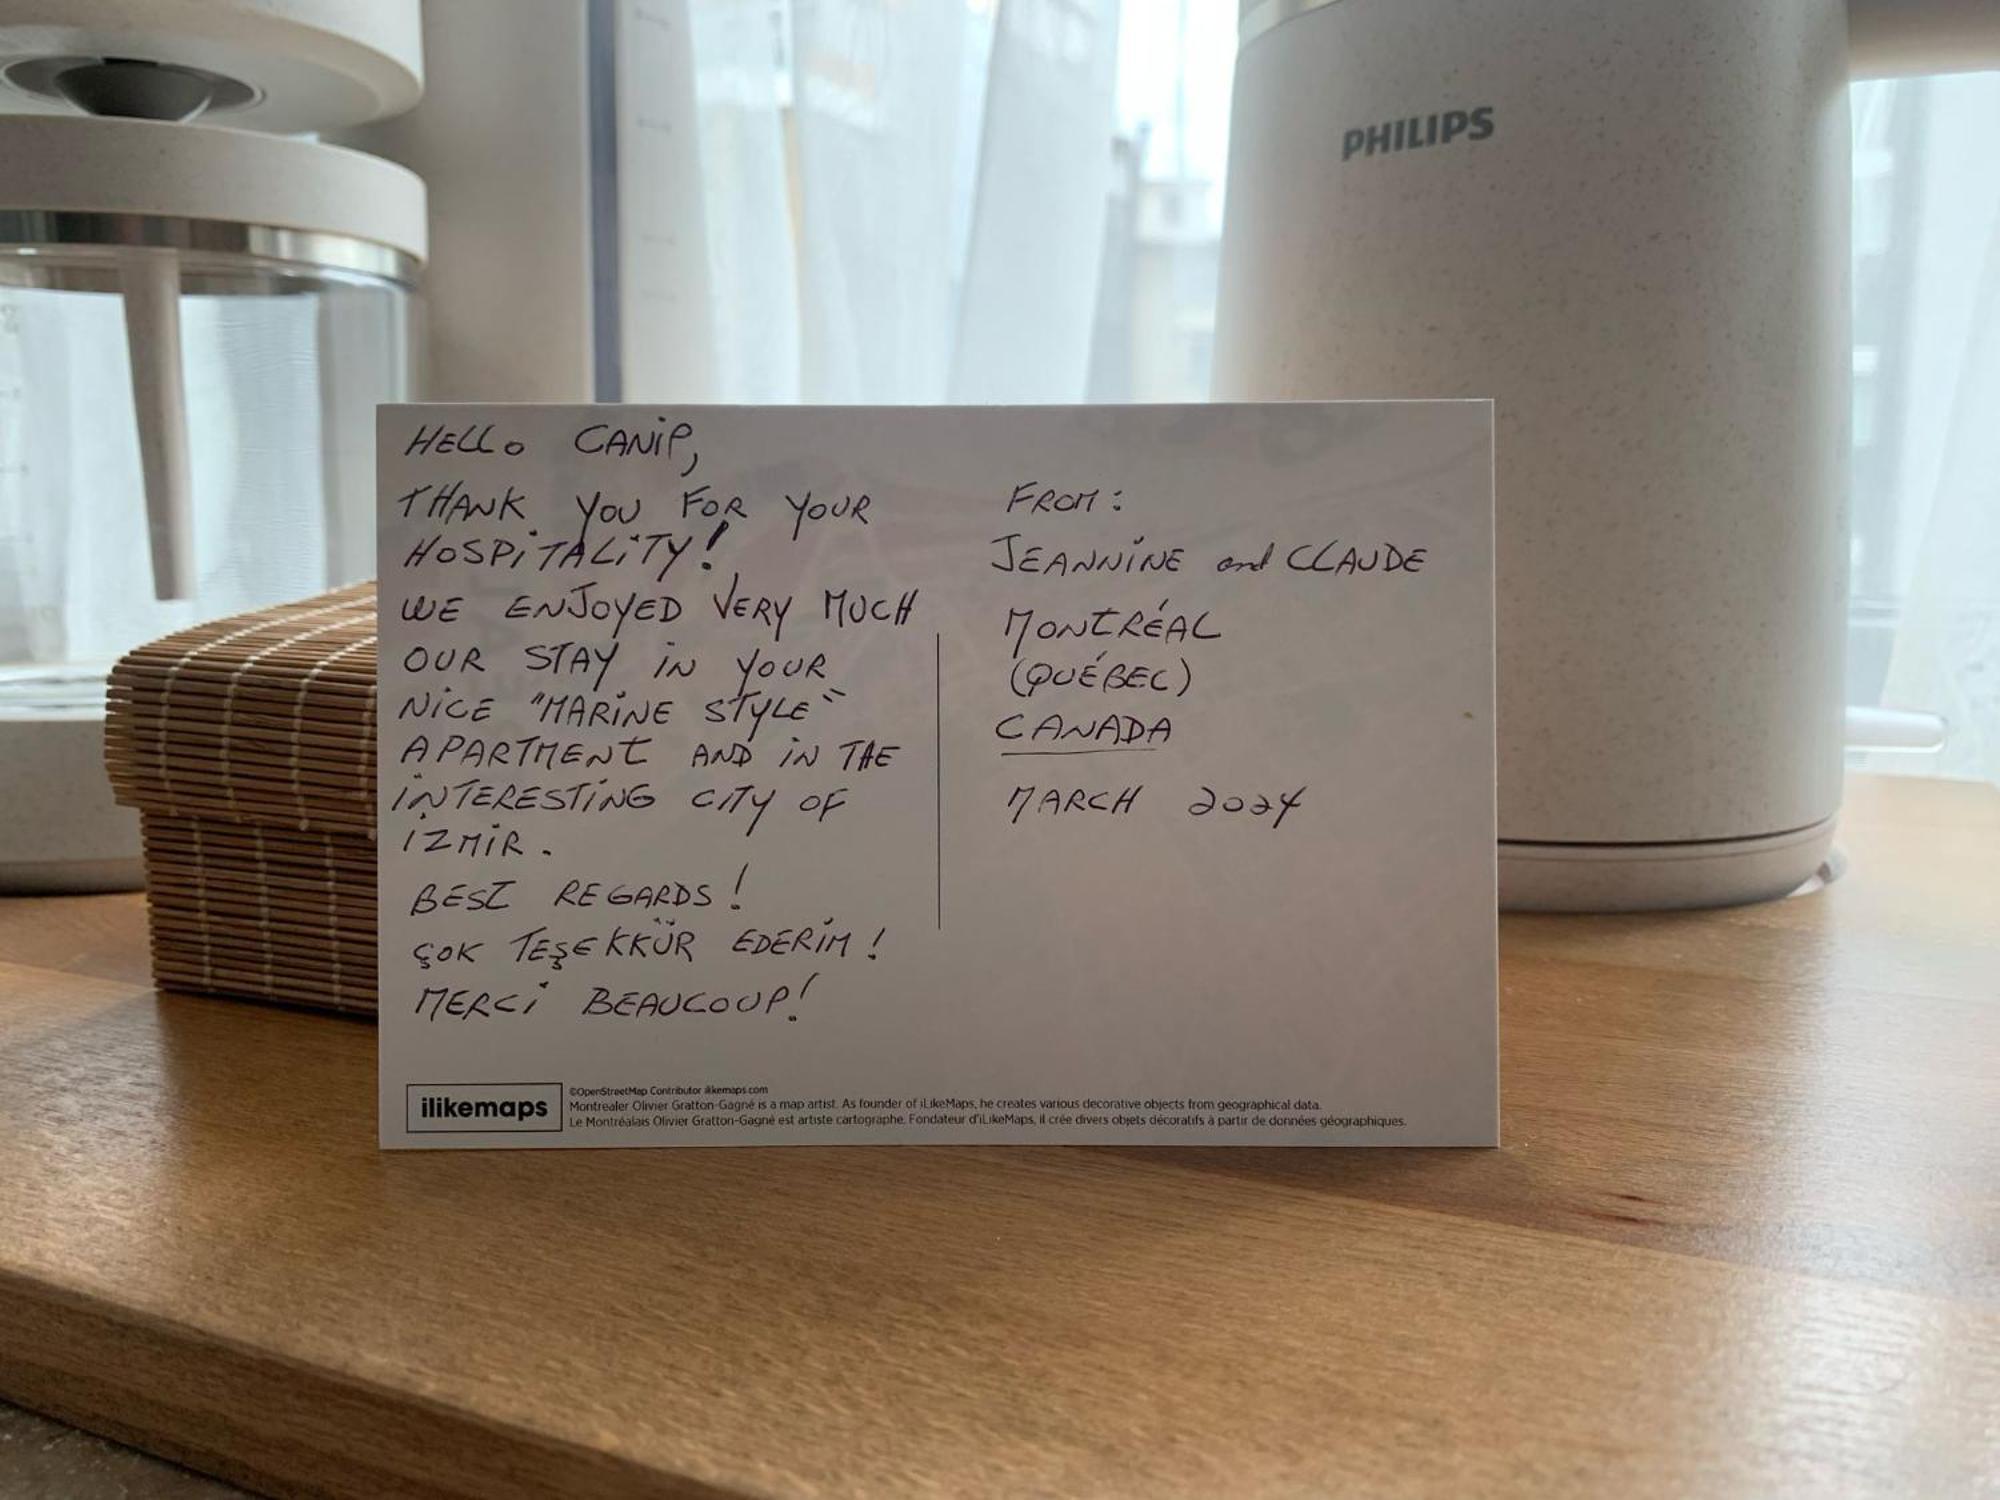 PHILIPS
HELLO CANiP,
THANK YOU FOR YOUR
HOSPiTALiTY!
WE ENJOYED VERY MUCH
OUR STAY iN YOUR
NiCE "MARiNE STYLE"
APARTMENT AND iN THE
iNTERESTiNG CiTY OF
iZMiR.
BEST REGARDS!
ÇOK TEŞEKKÜR EDERiM!
MERCi BEAUCOUP!
FROM:
JEANNiNE and CLAUDE
MONTRÉAL
(QUÉBEC)
CANADA
MARCH 2024
ilikemaps
©OpenStreetMap Contributor ilikemaps.com
Montrealer Olivier Gratton-Gagné is a map artist. As founder of iLikeMaps, he creates various decorative objects from geographical data.
Le Montréalais Olivier Gratton-Gagné est artiste cartographe. Fondateur d'iLikeMaps, il crée divers objets décoratifs à partir de données géographiques.